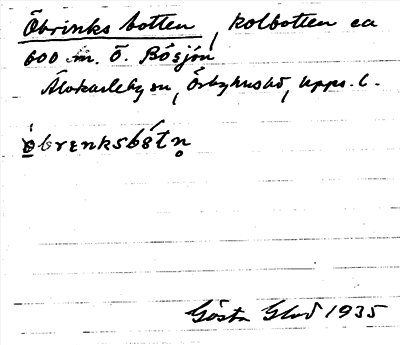 Öbrinks botten, kolbotten ca
600 m. Ö. Bösjön
Älvkarleby sn, Örbyhus hd, Upps. l.
Gösta 1935